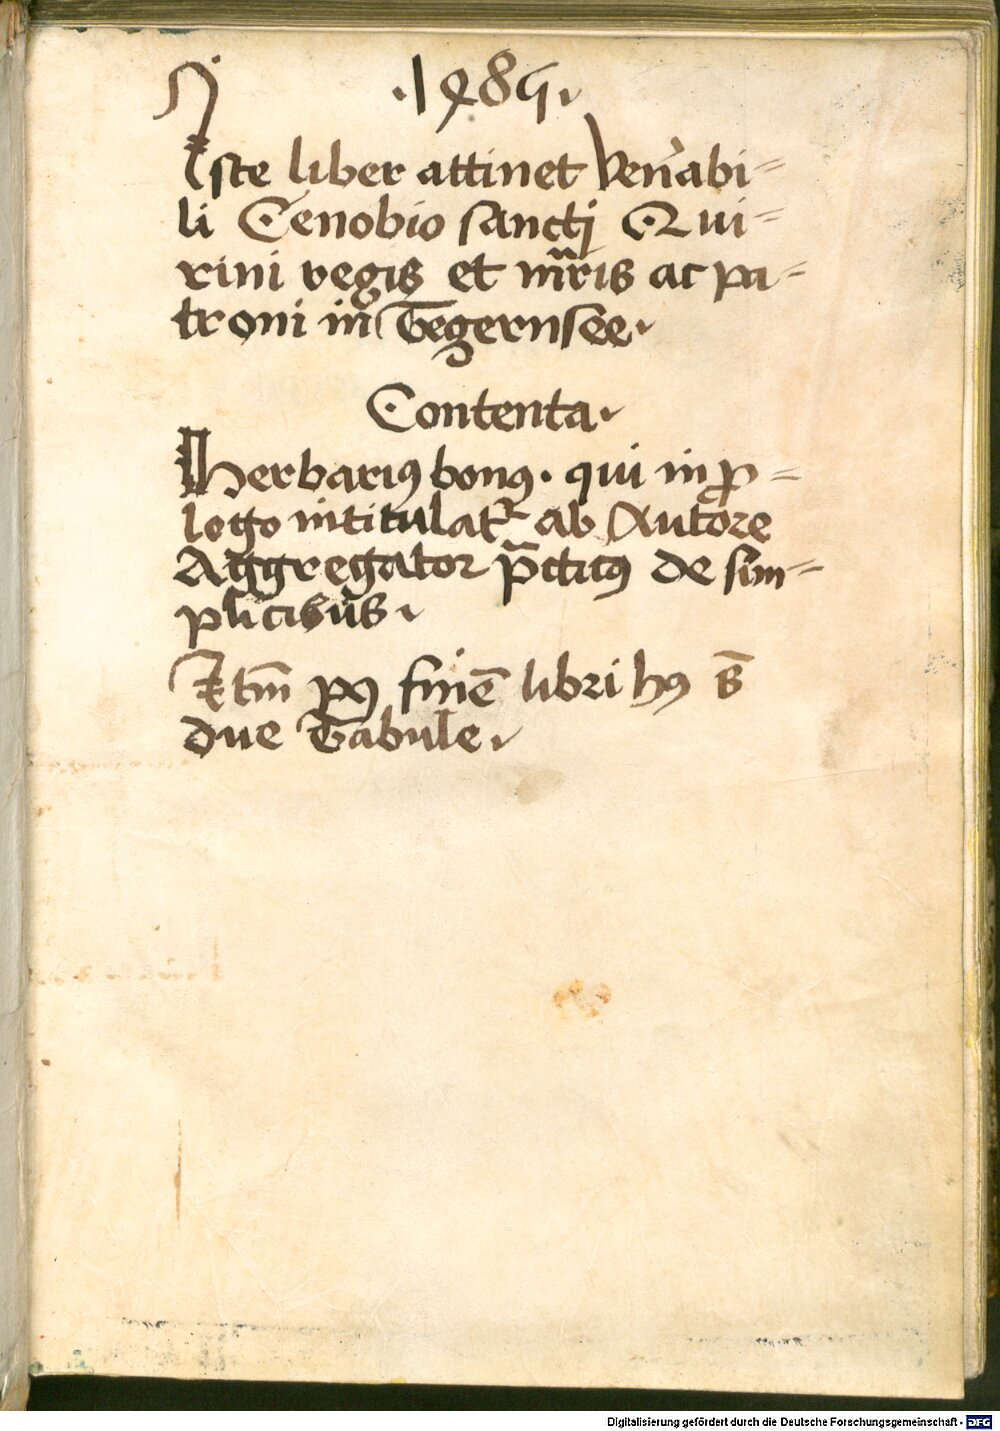 ·1485·
Iste liber attinet Ven̄abi=
li Cenobio sanctj Qui=
rini regis et mr̄is ac pa=
troni in Tegernsee·
Contenta·
Herbariꝰ bonꝰ· qui in ꝓ=
logo intitulatꝛ ab Autore
Aggregator pᷓcticꝰ de sim=
plicibus·
Itm̄ pꝰ finē libri hꝰ s̄
due Tabule·
Digitalisierung gefördert durch die Deutsche Forschungsgemeinschaft - DFG